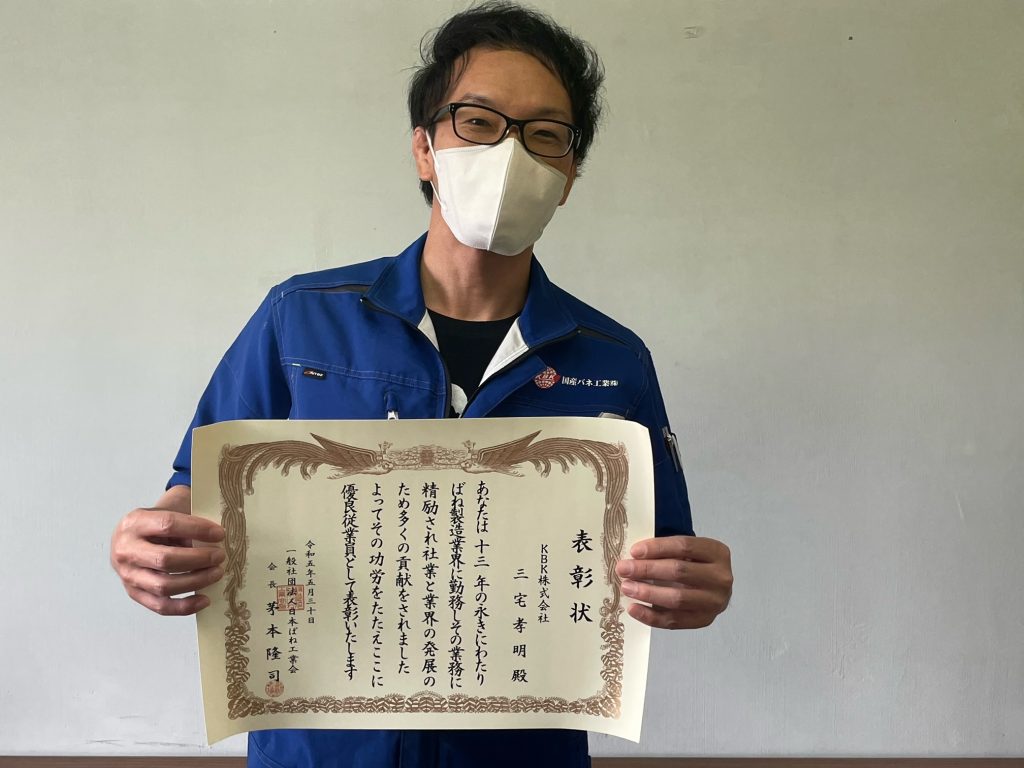 KBK 国産バネ工業㈱
表彰状
KBK株式会社
三宅孝明殿
あなたは十三年の永きにわたり
ばね製造業界に勤務しその業務に
精励され社業と業界の発展の
ため多くの貢献をされました
よってその功労をたたえここに
優良従業員として表彰いたします
令和五年五月三十日
一般社団法人日本ばね工業会
会長 茅本隆司